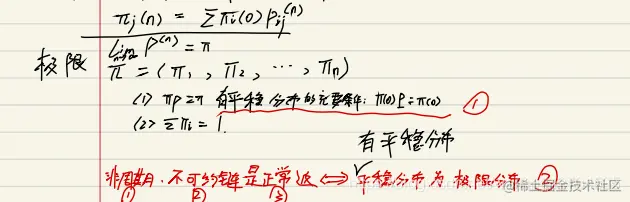 πj(n) = Σπi(0) Pij(n)
极限 lim P(n) = π
n→∞
π = (π1, π2, ⋯, πn)
(1) πP=π 有平稳分布的充要条件: π(0)P=π(0) ①
(2) Σπi = 1.
有平稳分布
非周期、不可约链是正常返 ⟺ 平稳分布为极限分布 ②
① ② ③
@稀土掘金技术社区